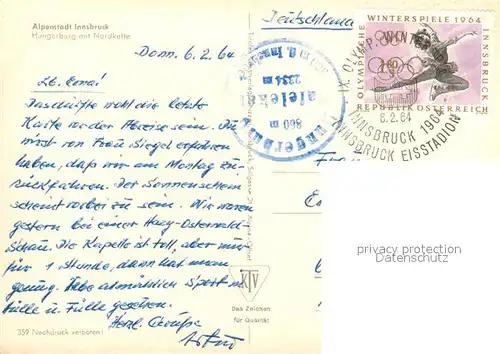 Alpenstadt Innsbruck
Hungerburg mit Nordkette
Donn. 6.2.64
Deutschland
OLYMPISCHE WINTERSPIELE 1964 INNSBRUCK
REPUBLIK ÖSTERREICH
IX. OLYMP. WINTER
6.2.64
INNSBRUCK 1964
INNSBRUCK EISSTADION
860 m
2334 m
hoffe nicht die letzte
Karte vor der Abreise sein. Du
wirst von Frau Siegel erfahren
haben, daß wir am Montag zu-
rückfahren. Der Sonnenschein
scheint vorbei zu sein. Wir waren
gestern bei einer Hazy-Osterwald-
Schau. Die Kapelle ist toll, aber nur
für 1 Stunde, dann hat man
genug. Habe allmählich Sport in
Hülle u. Fülle gesehen.
Herzl. Grüße
KTV
Das Zeichen
für Qualität
359 Nachdruck verboten!
privacy protection
Datenschutz